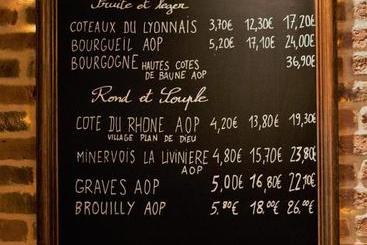 Fruité et léger
COTEAUX DU LYONNAIS 3,70€ 12,30€ 17,20€
BOURGUEIL AOP 5,20€ 17,10€ 24,00€
BOURGOGNE HAUTES COTES 36,90€
DE BAUNE AOP
Rond et Souple
COTE DU RHONE AOP 4,20€ 13,80€ 19,30€
VILLAGE PLAN DE DIEU
MINERVOIS LA LIVINIERE 4,80€ 15,70€ 23,80€
AOP
GRAVES AOP 5,00€ 16,80€ 22,10€
BROUILLY AOP 5.80€ 18.00€ 26.00€